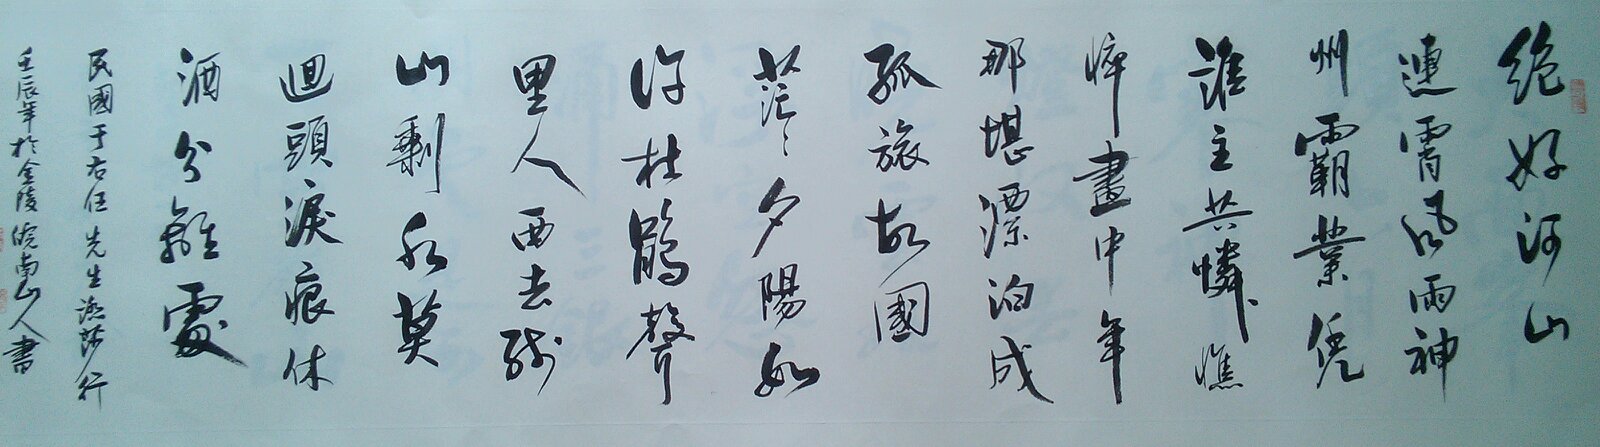 絶好河山
連宵風雨神
州霸業凭
誰主共憐憔
悴畫中年
那堪漂泊成
孤旅故國
茫々夕陽如
許杜鵑聲
里人西去殘
山剩水莫
迴頭淚痕休
酒分離處
民國于右任先生踏莎行
壬辰年於金陵皖南山人書